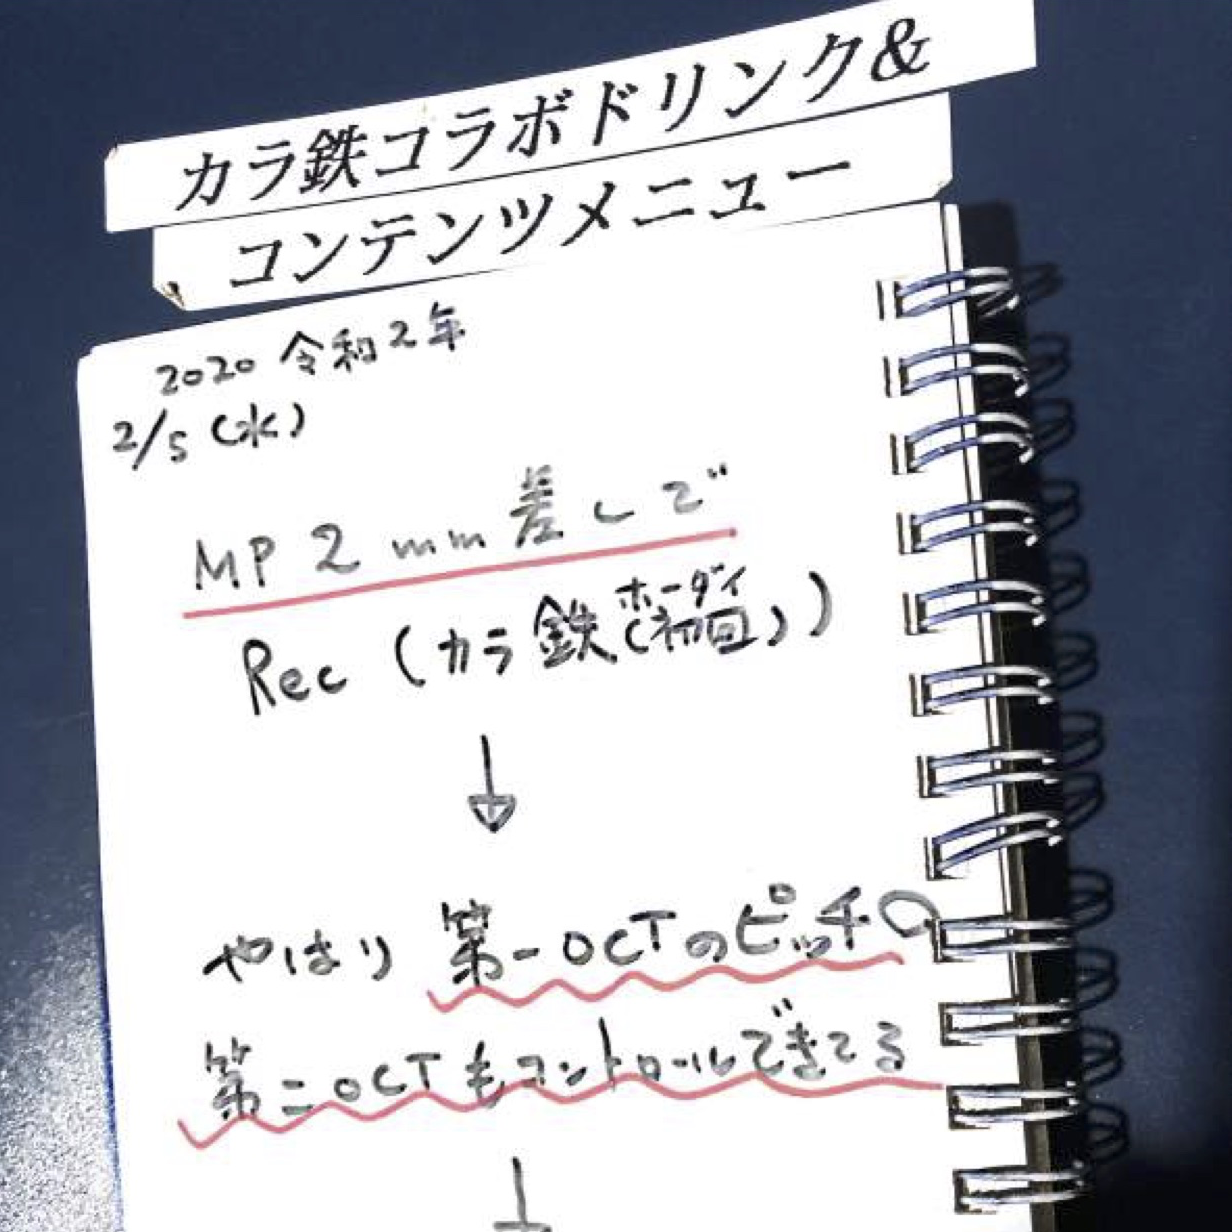 カラ鉄コラボドリンク&
コンテンツメニュー
2020 令和2年
2/5 (水)
MP 2 mm差しで
ホーダイ
Rec (カラ鉄(初回))
↓
やはり 第一OCTのピッチ○
第二OCTもコントロールできてる